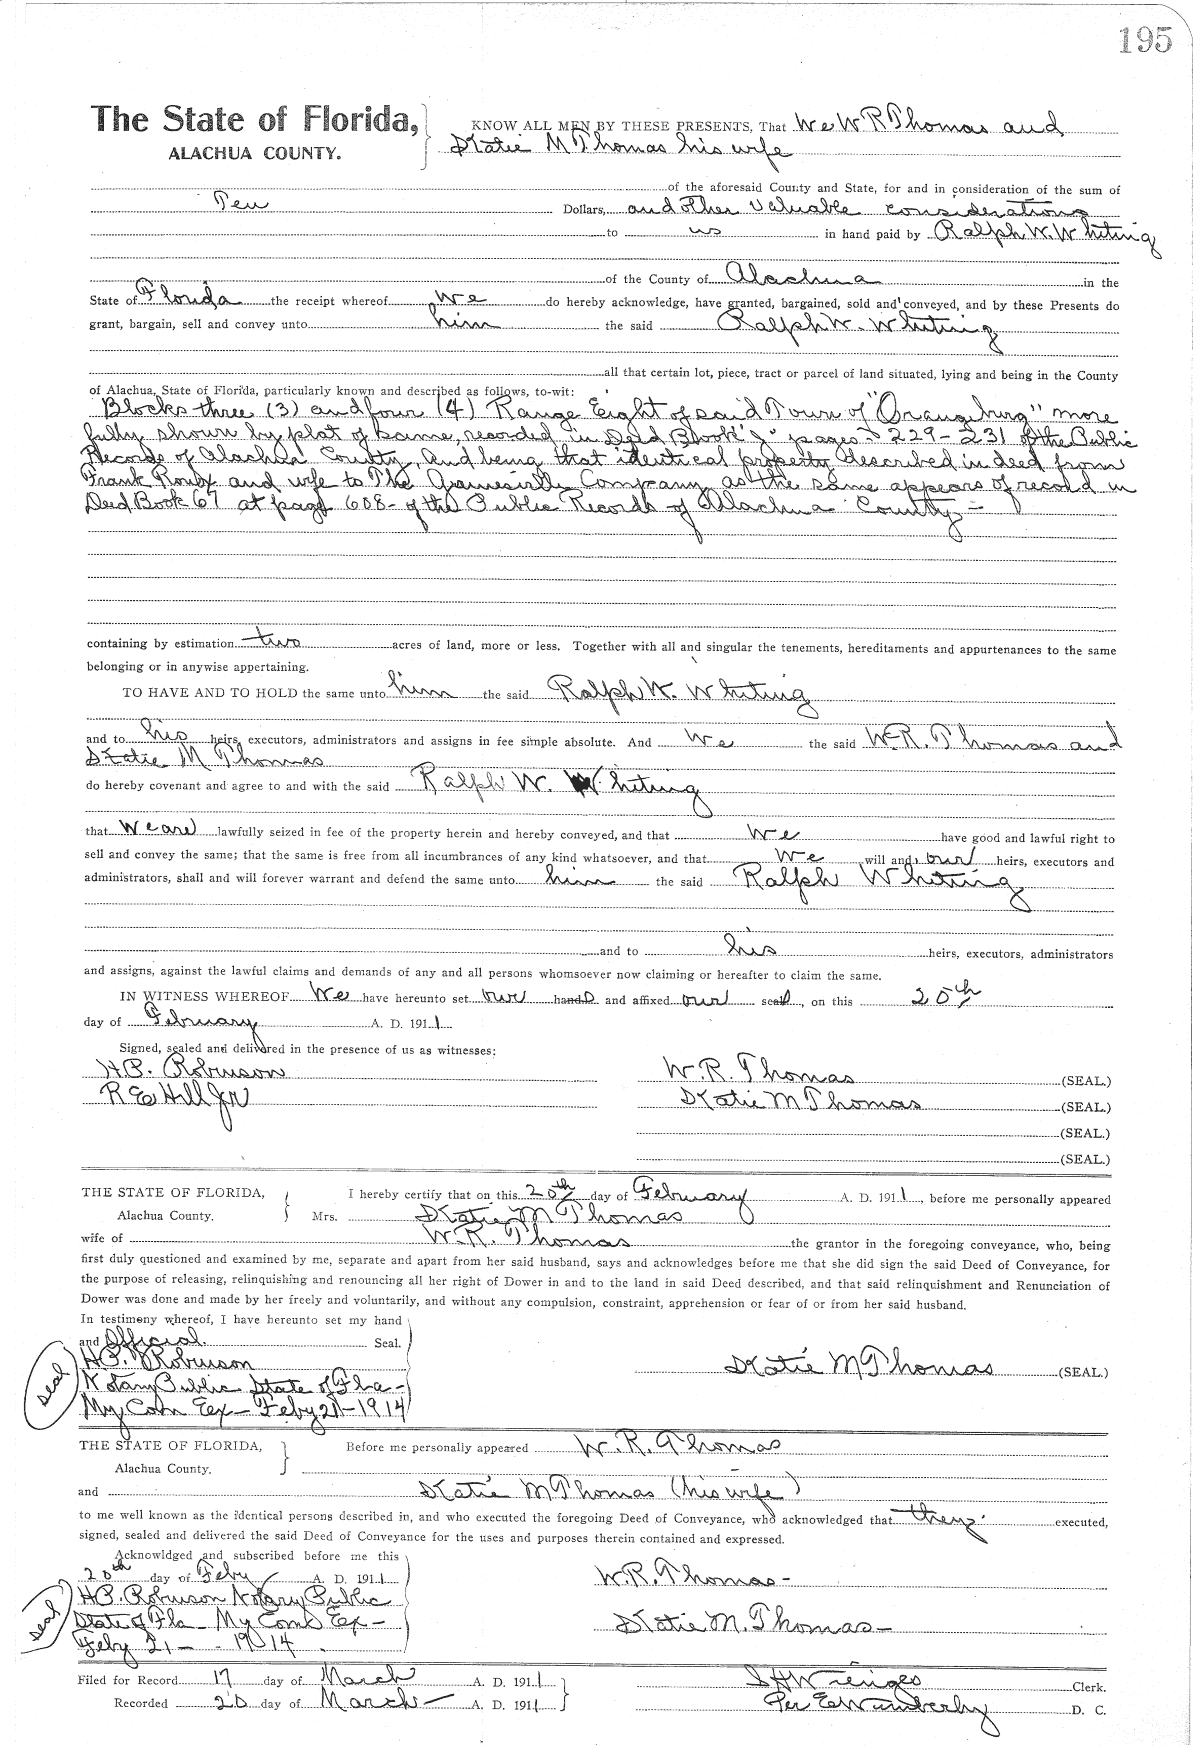 195
The State of Florida, KNOW ALL MEN BY THESE PRESENTS, That We W R Thomas and
ALACHUA COUNTY. Katie M Thomas his wife
of the aforesaid County and State, for and in consideration of the sum of
Ten Dollars, and other valuable considerations
to us in hand paid by Ralph W. Whiting
of the County of Alachua in the
State of Florida the receipt whereof We do hereby acknowledge, have granted, bargained, sold and conveyed, and by these Presents do
grant, bargain, sell and convey unto him the said Ralph W. Whiting
all that certain lot, piece, tract or parcel of land situated, lying and being in the County
of Alachua, State of Florida, particularly known and described as follows, to-wit:
Blocks three (3) and four (4) Range Eight of said Town of "Orangeburg" more
fully shown by plat of same, recorded in Deed Book pages 229-231 of the Public
Records of Alachua County, and being that identical property described in deed from
Frank and wife to The Gainesville Company as the same appears of record in
Deed Book 67 at page 608- of the Public Records of Alachua County -
containing by estimation two acres of land, more or less. Together with all and singular the tenements, hereditaments and appurtenances to the same
belonging or in anywise appertaining.
TO HAVE AND TO HOLD the same unto him the said Ralph W. Whiting
and to his heirs, executors, administrators and assigns in fee simple absolute. And We the said W.R. Thomas and
Katie M Thomas
do hereby covenant and agree to and with the said Ralph W. Whiting
that we are lawfully seized in fee of the property herein and hereby conveyed, and that We have good and lawful right to
sell and convey the same; that the same is free from all incumbrances of any kind whatsoever, and that We will and our heirs, executors and
administrators, shall and will forever warrant and defend the same unto him the said Ralph Whiting
and to his heirs, executors, administrators
and assigns, against the lawful claims and demands of any and all persons whomsoever now claiming or hereafter to claim the same.
IN WITNESS WHEREOF We have hereunto set our hands and affixed our seals, on this 20th
day of February A. D. 1911
Signed, sealed and delivered in the presence of us as witnesses:
H.C. Robinson W.R. Thomas (SEAL.)
R E Hill Jr Katie M Thomas (SEAL.)
(SEAL.)
(SEAL.)
THE STATE OF FLORIDA, I hereby certify that on this 20th day of February A. D. 1911, before me personally appeared
Alachua County. Mrs. Katie M Thomas
wife of W.R. Thomas the grantor in the foregoing conveyance, who, being
first duly questioned and examined by me, separate and apart from her said husband, says and acknowledges before me that she did sign the said Deed of Conveyance, for
the purpose of releasing, relinquishing and renouncing all her right of Dower in and to the land in said Deed described, and that said relinquishment and Renunciation of
Dower was done and made by her freely and voluntarily, and without any compulsion, constraint, apprehension or fear of or from her said husband.
In testimony whereof, I have hereunto set my hand
and Official. Seal.
seal H.C. Robinson Katie M Thomas (SEAL)
Notary Public State of Fla-
My Com Eex- Feby 21-1914
THE STATE OF FLORIDA, Before me personally appeared W. R. Thomas
Alachua County.
and Katie M Thomas (his wife)
to me well known as the identical persons described in, and who executed the foregoing Deed of Conveyance, who acknowledged that they executed,
signed, sealed and delivered the said Deed of Conveyance for the uses and purposes therein contained and expressed.
Acknowldged and subscribed before me this
20th day of Feby A. D. 1911 W.R. Thomas-
seal H.C. Robinson Notary Public
State of Fla- My Com Ex- Katie M. Thomas-
Feby 21- 1914
Filed for Record 17 day of March A. D. 1911 S H Wienges Clerk.
Recorded 20 day of March A. D. 1911 Per D. C.